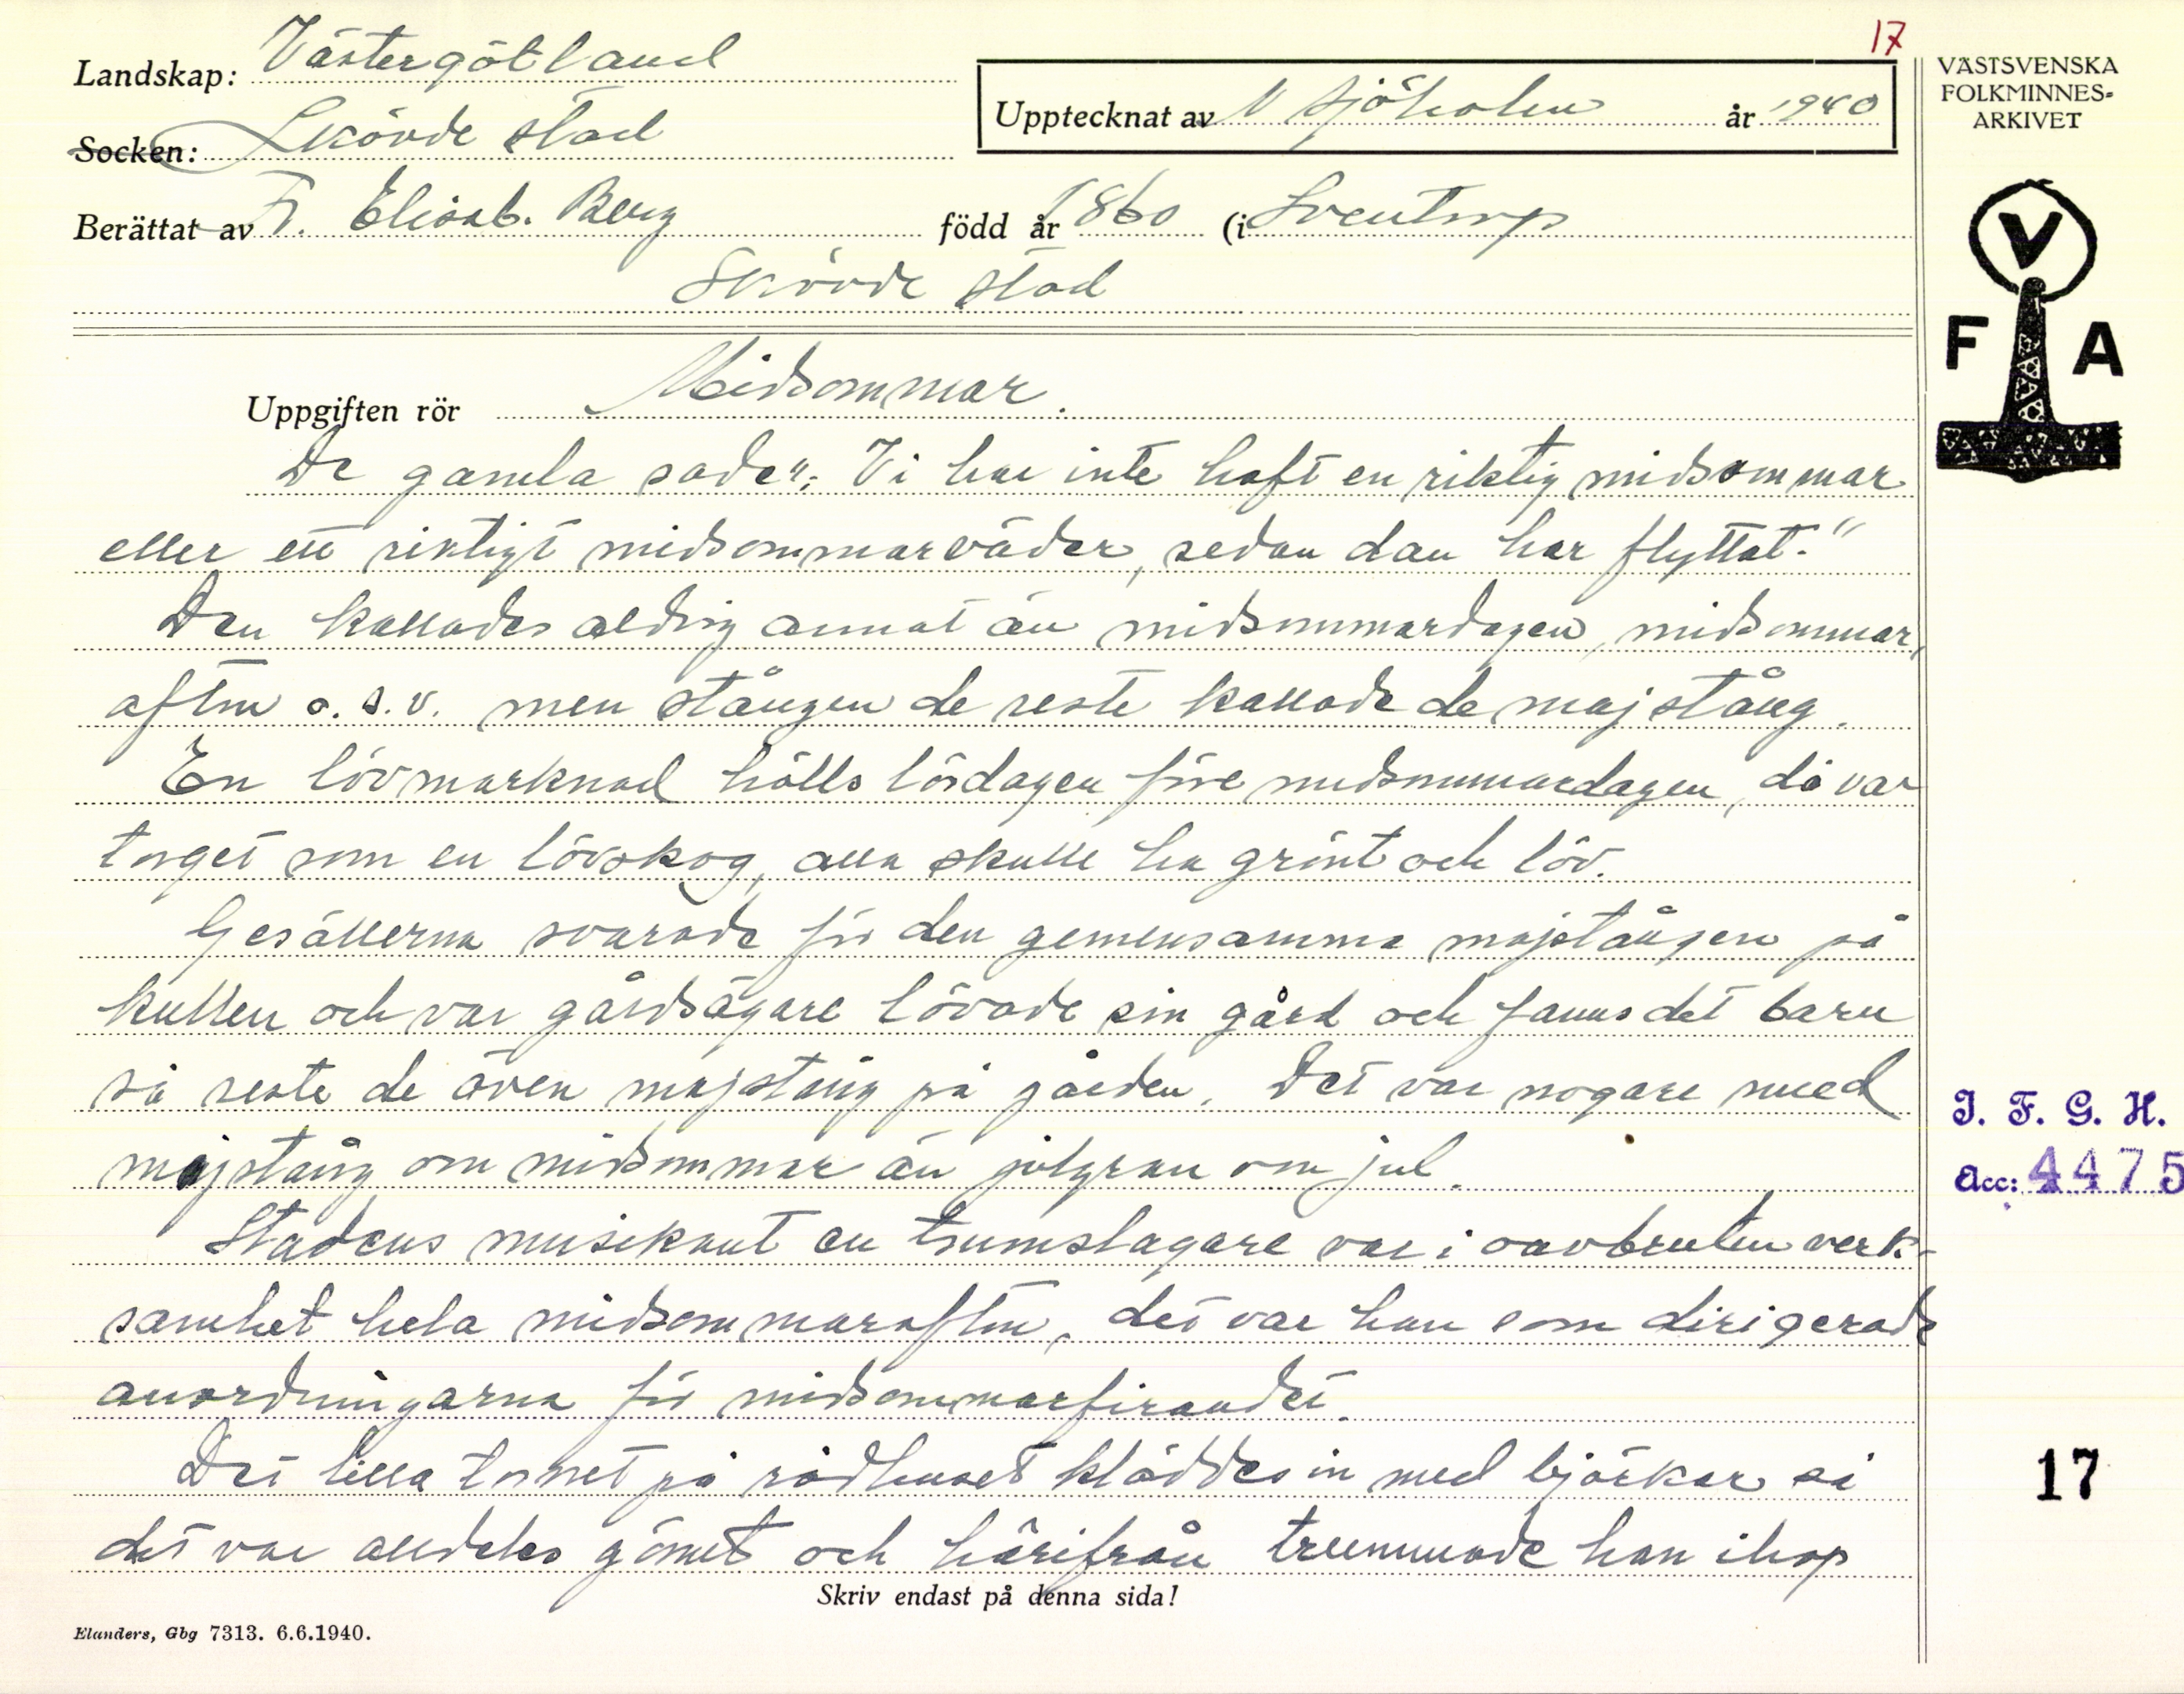 17
Landskap: Västergötland
Upptecknat av N Sjöholm år 1940
VÄSTSVENSKA
FOLKMINNES-
ARKIVET
Socken: Skövde stad
Berättat av Fr. Elisab. Berg född år 1860 (i Sventorp
Skövde stad
V
F A
Uppgiften rör Midsommar.
De gamla sade": Vi har inte haft en riktig midsommar
eller ett riktigt midsommarväder, sedan dan har flyttat."
Den kallades aldrig annat än midsommardagen, midsommar,
aftm o.s.v. men stången de reste kallade de majstång.
En lövmarknad hölls lördagen före midsommardagen, då var
torget som en lövskog, alla skulle ha grönt och löv.
Gesällerna svarade för den gemensamma majstången på
kullen och var gårdsägare lövade sin gård och fanns det barn
så reste de även majstång på gården. Det var nogare med
majstång om midsommar än julgran om jul.
Stadens musikant en trumslagare var i oavbruten verk-
samhet hela midsommaraftm, det var han som dirigerade
anordningarna för midsommarfirandet.
Det lilla tornet på rådhuset kläddes in med björkar så
det var alldeles gömt och härifrån trummade han ihop
Skriv endast på denna sida!
Elanders, Gbg 7313. 6.6.1940.
I. F. G. H.
Acc: 4475
17